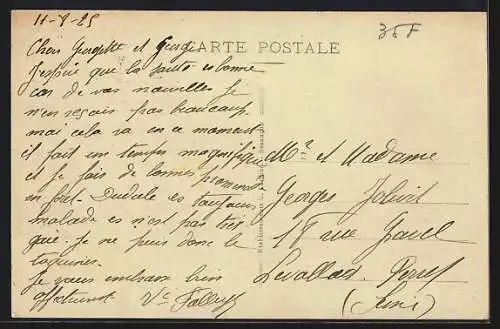 11-8-25
35F
CARTE POSTALE
Chers Georgette et Georges
J'espère que la santé es bonne
car de vos nouvelles je
n'en reçois pas beaucoup.
moi cela va en ce moment
il fait un temps magnifique
et je fais de bonnes promenades
en foret. es toujours
malade es n'est pas très
gaie. Je ne puis donc la
taquiner.
Je vous embrasse bien
affectueuse
Mr et Madame
Georges Jolivet
18 rue Gravel
Levallois-Perret
(Seine)